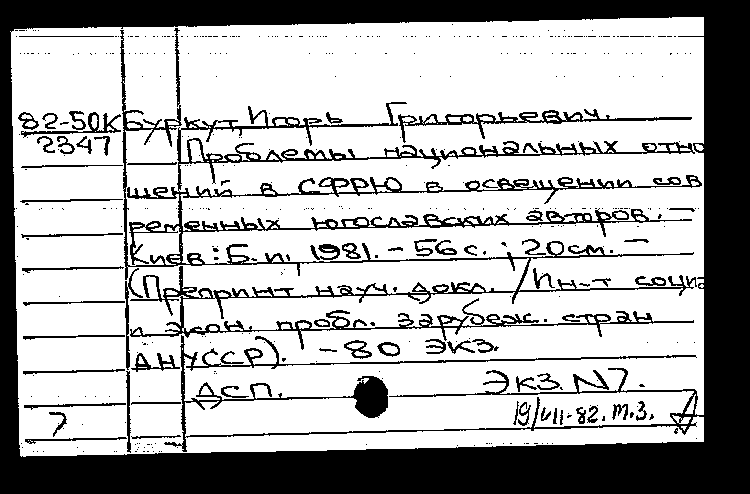 82-50К Буркут, Игорь Григорьевич.
2347 Проблемы национальных отно
шений в СФРЮ в освещении сов
ременных югославских авторов. –
Киев : Б.и., 1981. – 56 с. ; 20 см. –
(Препринт науч. докл. / Ин-т социа
и экон. пробл. зарубеж. стран
АН УССР). – 80 экз.
ДСП. Экз. N7.
7 19/VII-82. т.з.